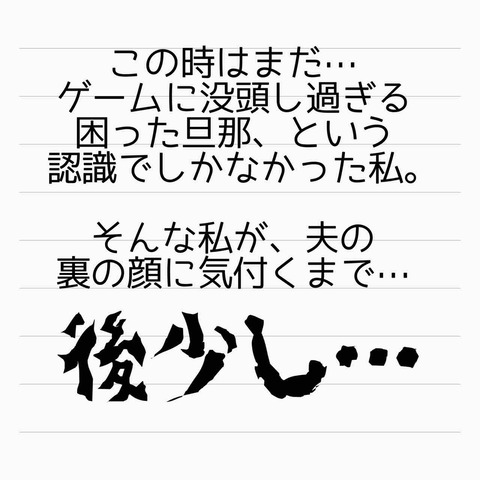 この時はまだ…
ゲームに没頭し過ぎる
困った旦那、という
認識でしかなかった私。
そんな私が、夫の
裏の顔に気付くまで…
後少し…